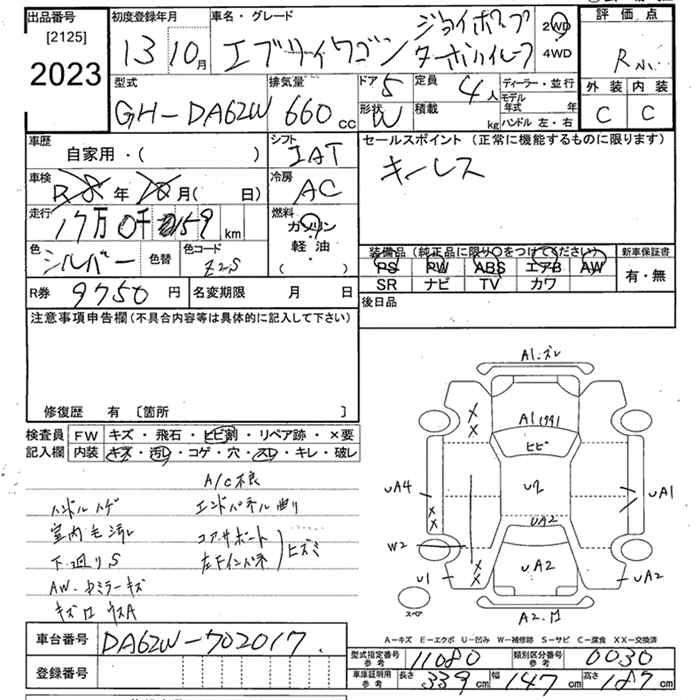 出品番号
[2125]
2023
初度登録年月
13 10月
車名・グレード
エブリィワゴン ジョイポップ
ターボハイルーフ
2WD
4WD
評価点
外装 内装
C C
型式
GH-DA62W
排気量
660 cc
ドア 5
定員 4人
形状 W
積載 kg
ディーラー・並行
モデル年式 年
ハンドル 左・右
車歴
自家用・( )
シフト
IAT
セールスポイント (正常に機能するものに限ります)
キーレス
車検
R8年10月( 日)
冷房
AC
走行
17万0千159 km
燃料
ガソリン
軽油
( )
色
シルバー
色替
色コード
Z2S
装備品 (純正品に限り〇をつけてください)
新車保証書
PS PW ABS エアB AW
有・無
SR ナビ TV カワ
R券 9750円
名変期限 月 日
後日品
注意事項申告欄(不具合内容等は具体的に記入して下さい)
修復歴 有 〔箇所 〕
検査員 FW キズ・飛石・ヒビ割・リペア跡・×要
記入欄 内装 キズ・汚レ・コゲ・穴・スレ・キレ・破レ
A/C不良
ハンドルハゲ エンドパネル曲り
室内毛汚レ コアサポート
下廻りS 左Fインパネ ヒズミ
AW・ミラーキズ
A1・ズレ
A1
ヒビ
U2
UA2
UA2
UA4
UA1
W2
U1
UA2
スペア
A2・ロ
A-キズ E-エクボ U-凹み W-補修跡 S-サビ C-腐食 XX-交換済
車台番号 DA62W-702017
登録番号
型式指定番号 参考 11080
類別区分番号 参考 0030
車庫証明用 参考 長さ 339cm 幅 147cm 高さ 187cm